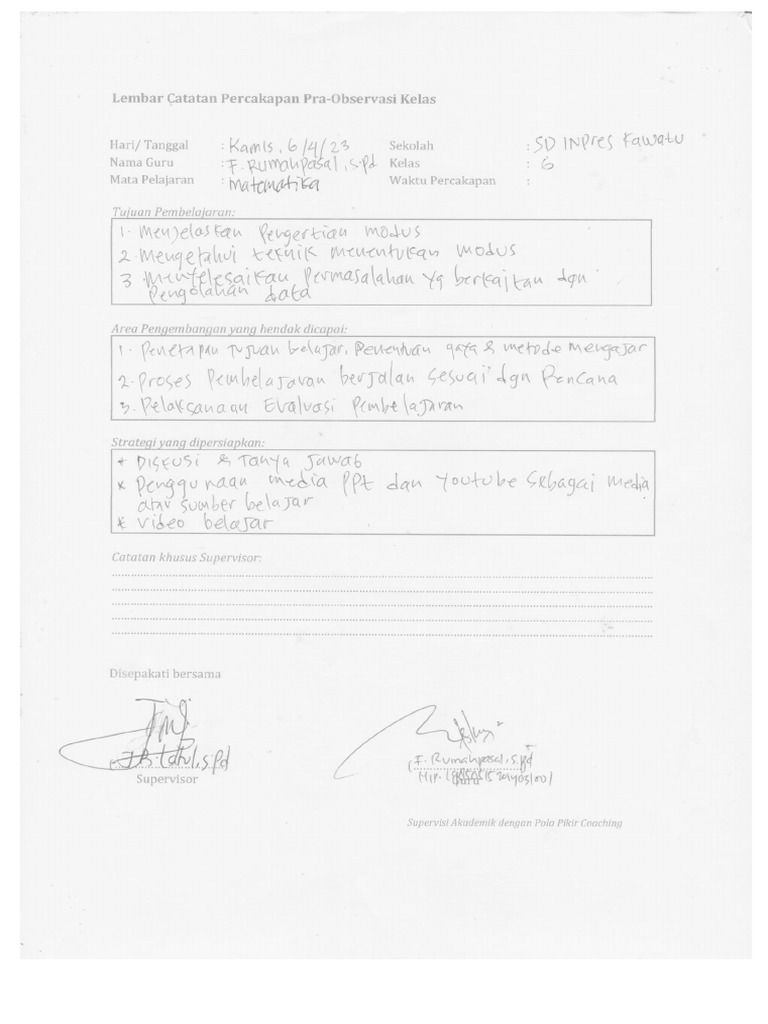 Lembar Catatan Percakapan Pra-Observasi Kelas
Hari/ Tanggal : Kamis, 6/4/23 Sekolah : SD INPres Kawatu
Nama Guru : F. Rumahpasal, S.Pd Kelas : 6
Mata Pelajaran : Matematika Waktu Percakapan :
Tujuan Pembelajaran:
1. Menjelaskan Pengertian modus
2. Mengetahui teknik menentukan modus
3 Menyelesaikan Permasalahan yg berkaitan dgn
Pengolahan data
Area Pengembangan yang hendak dicapai:
1. Penetapan Tujuan belajar, Penentuan gaya & metode mengajar
2. Proses Pembelajaran berjalan sesuai dgn Rencana
3. Pelaksanaan Evaluasi Pembelajaran
Strategi yang dipersiapkan:
* DISKUSI & Tanya Jawab
* Penggunaan media PPt dan Youtube sebagai media
atau sumber belajar
* Video belajar
Catatan khusus Supervisor:
Disepakati bersama
S.Pd
Supervisor
(F. Rumahpasal, S.Pd
Nip.
Guru
Supervisi Akademik dengan Pola Pikir Coaching